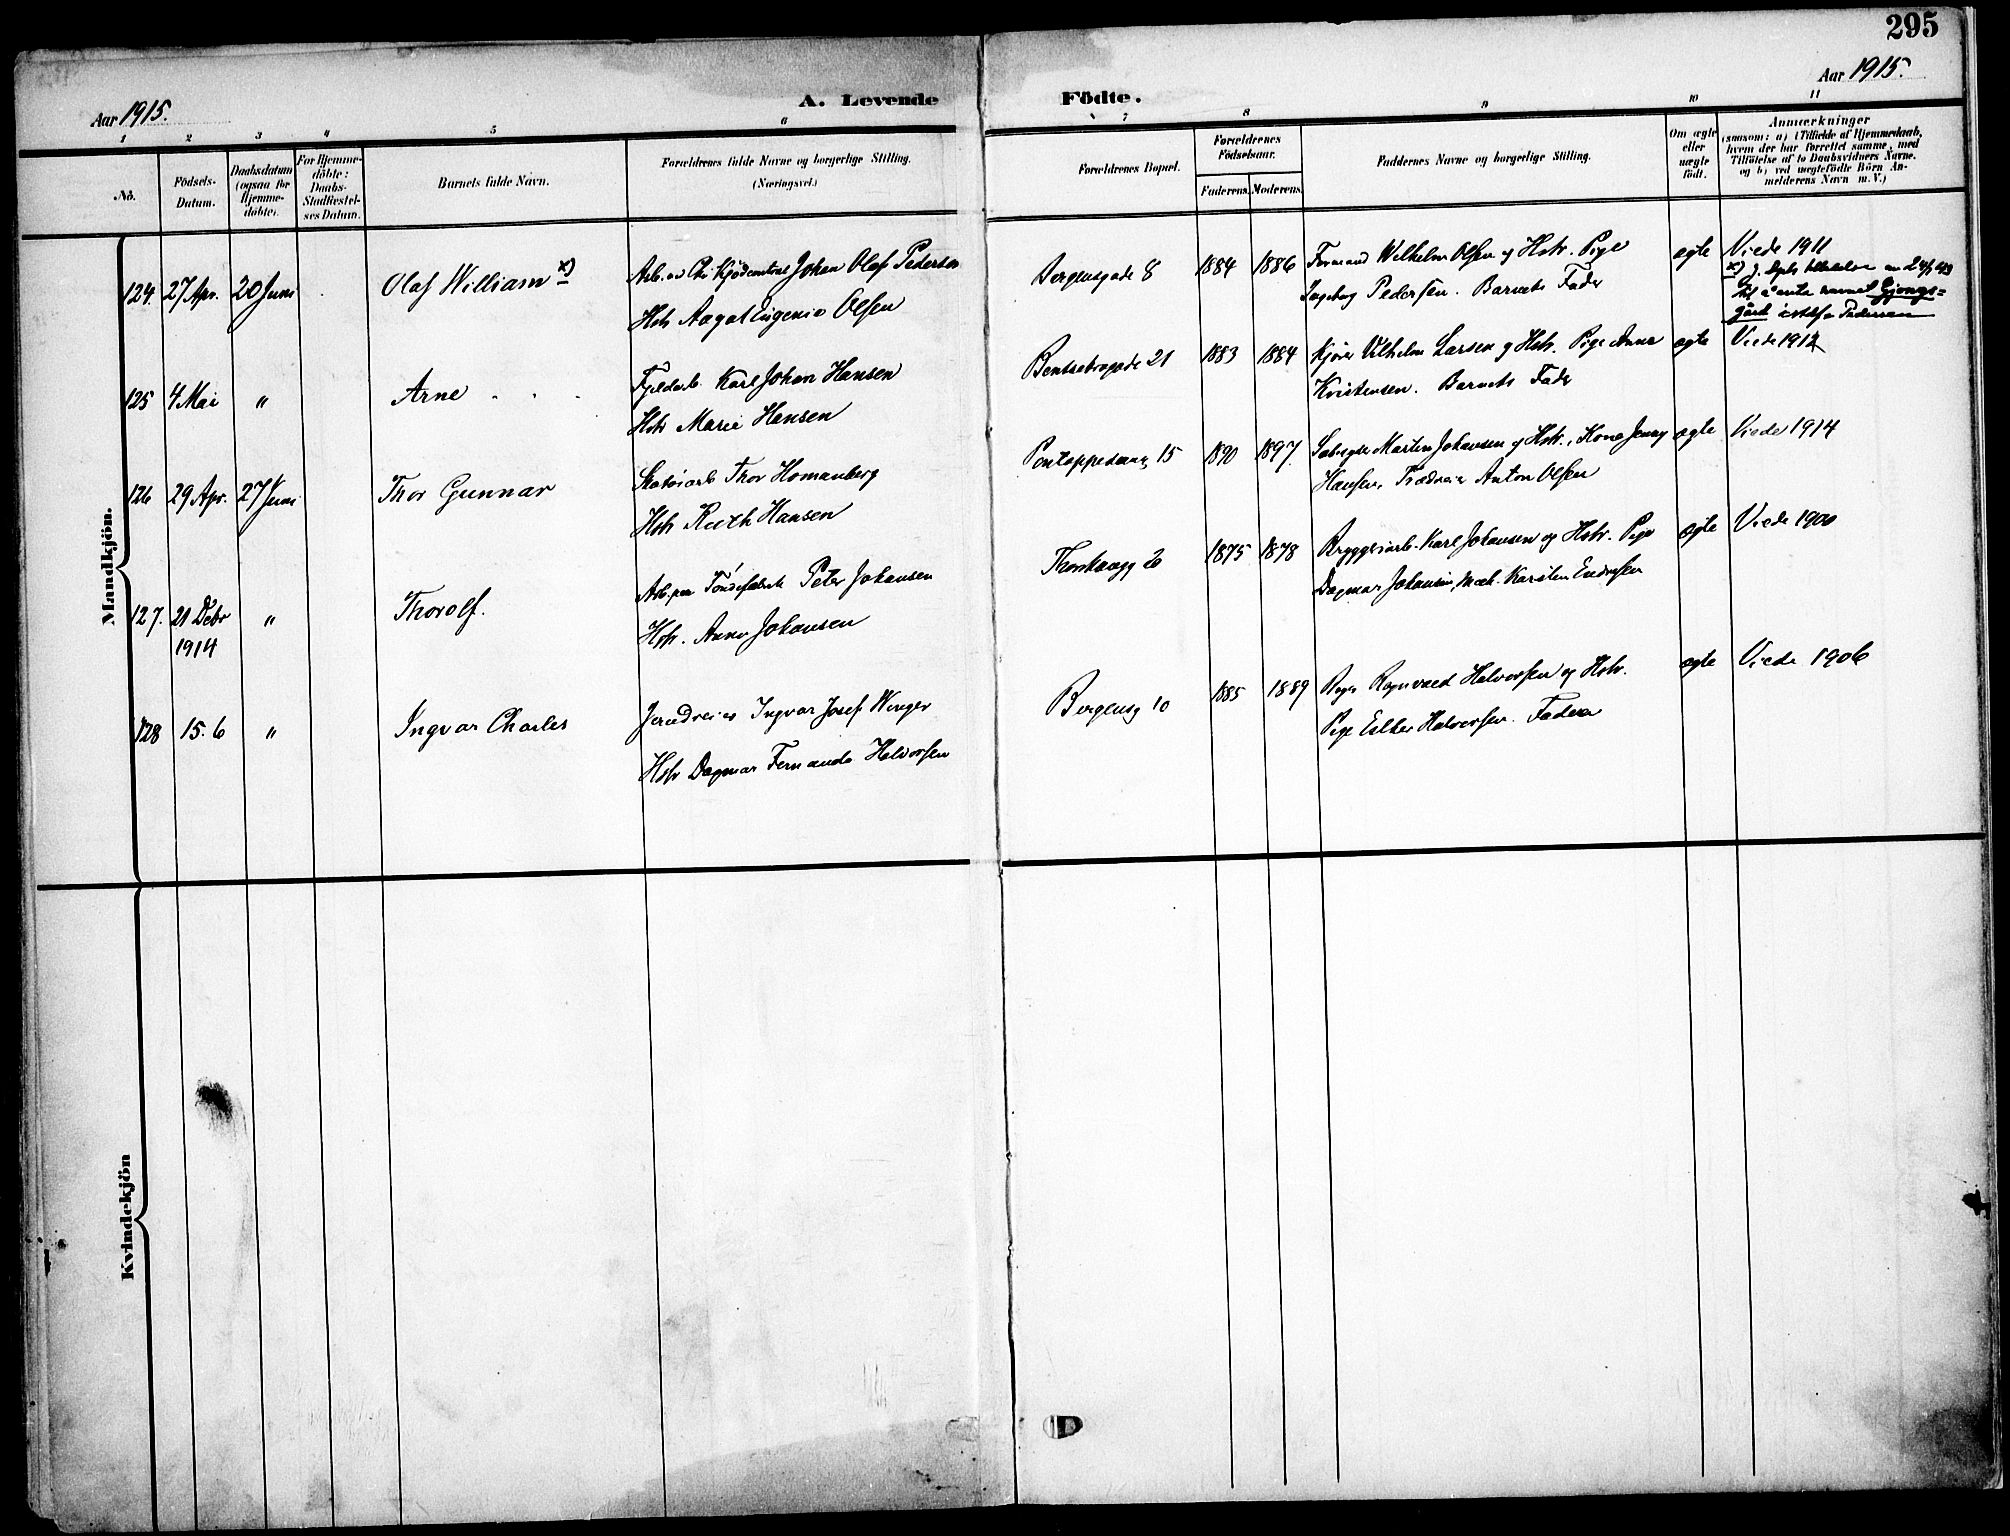 295
Aar 1915.
Aar 1915.
A. Levende Födte.
1 2 3 4 5 6 7 8 9 10 11
No.
Födsels-
Datum.
Daabsdatum
(ogsaa for
Hjemme-
döbte).
For Hjemme-
döbte:
Daabs-
Stadfæstel-
ses Datum.
Barnets fulde Navn.
Forældrenes fulde Navne og borgerlige Stilling.
(Næringsvei.)
Forældrenes Bopæl.
Forældrenes
Födselsaar.
Faderens. Moderens.
Faddernes Navne og borgerlige Stilling.
Om ægte
eller
uægte
født.
Anmærkninger
(saasom: a) i Tilfælde af Hjemmedaab,
hvem der har forrettet samme, med
Tilföielse af to Daabsvidners Navne.
og b) ved uægtefödte Börn An-
melderens Navn m. V.)
Mandkjön.
124. 27 Apr. 20 Juni Olaf William x)
Arb. Kjödcentral Johan Olaf Pedersen
Hstr Aagot Eugenie Olsen
Bergensgade 8 1884 1886
Formand Wilhelm Olsen og Hstr. Pige
Ingeborg Pedersen. Barnets Fader
ægte Viede 1911
x)
navnet Gjongs=
gård istdf. Pedersen
125 4 Mai " Arne
Karl Johan Hansen
Hstr Marie Hansen
Bentsebrogade 21 1883 1884
Kjörer Vilhelm Larsen og Hstr. Pige Anna
Kristensen. Barnets Fader
ægte Viede 1912
126 29 Apr. 27 Juni Thor Gunnar
Skotöiarb Thor Homanberg
Hstr Ruth Hansen
15 1890 1897.
Martin Johansen og Hstr., Kone Jenny
Hansen, Anton Olsen
ægte Viede 1914
127. 21 Debr
1914 " Thorolf.
Arb. paa Töndefabrik Peter Johansen
Hstr. Anna Johansen
2 1875 1878
Bryggeriarb. Karl Johansen og Hstr. Pige
Dagmar Johansen, Karsten
ægte Viede 1900
128 15.6 " Ingvar Charles
Jerndreier Ingvar Josef Winger
Hstr Dagmar Fernanda Halvorsen
Bergensg 10 1885 1889
Ragnvald Halvorsen og Hstr.
Pige Esther Halvorsen. Faderen
ægte Viede 1906
Kvindekjön